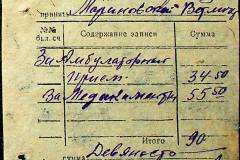 приняты Мариновской Валент
№№ был. сч Содержание записи Сумма
За Амбулаторный
прием. 34 50
За Медикаменты 55 50
Итого 90
Сумма Девяносто